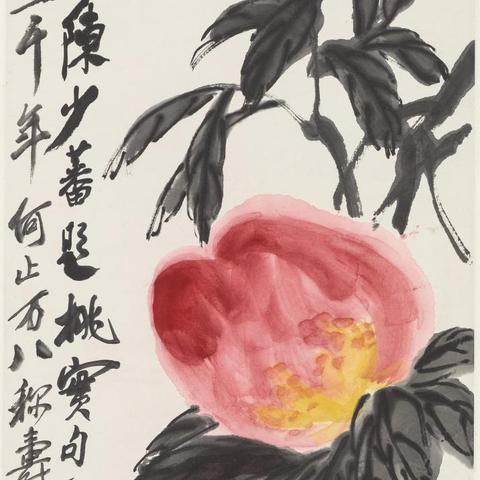 陳少蕃題桃實句
千年何止万八稱壽